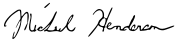 Michael Henderson